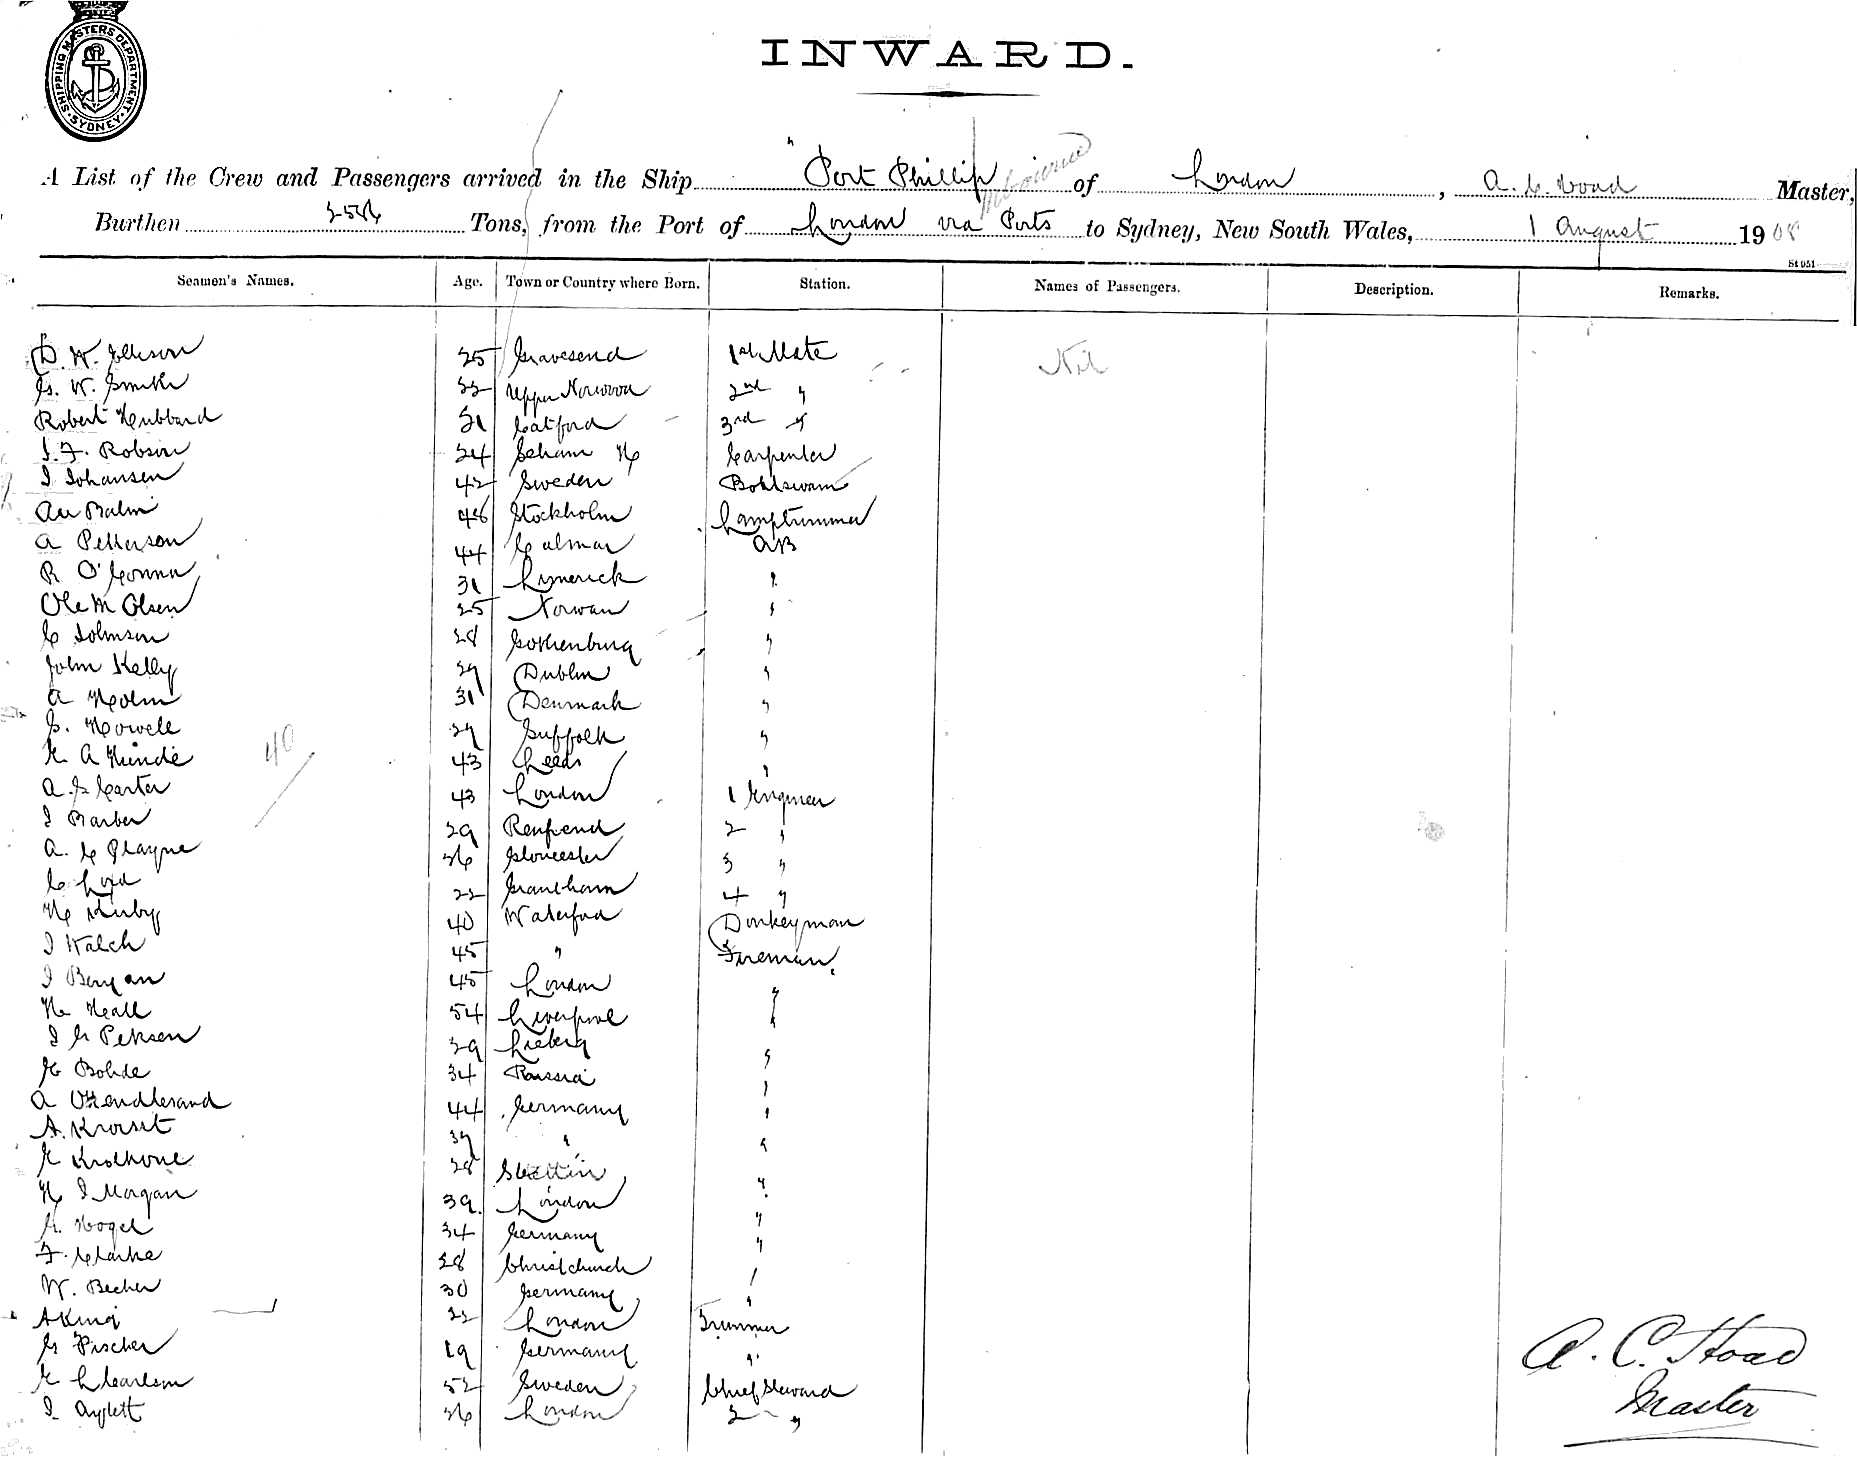 SHIPPING MASTERS DEPARTMENT SYDNEY
INWARD.
A List of the Crew and Passengers arrived in the Ship "Port Phillip of London, A. C. Hoad Master,
Burthen Tons, from the Port of London via Ports to Sydney, New South Wales, 1 August 1908
St 051
Seamen's Names. Age. Town or Country where Born. Station. Names of Passengers. Description. Remarks.
D. W. 25 Gravesend 1st Mate Nil
G. W. Smith 22 Upper Norwood 2nd "
Robert Hubbard 21 Catford 3rd "
J. F. Robson 24 Seham H Carpenter
J Johansen 42 Sweden
Balm 48 Stockholm Lamptrimmer
A Petterson 44 Calmar AB
R O'Connor 31 Limerick "
Ole M Olsen 25 Norway "
C Johnson 28 Gothenburg "
John Kelly 29 Dublin "
A Holm 31 Denmark "
G. Howell 29 Suffolk "
A Hinde 43 Leeds "
40
A. G Carter 43 London 1 Engineer
J Barber 29 2 "
A. C Playne 26 Gloucester 3 "
C Lord 22 Grantham 4 "
H Kirby 40 Waterford Donkeyman
J Walsh 45 " Fireman
J 45 London "
H Neall 54 Liverpool "
J G Petersen 39 "
Bohde 34 Russia "
A 44 Germany "
A. 39 " "
28 Stettin "
H J Morgan 39 London "
Vogel 34 Germany "
F. Clarke 28 Christchurch "
W. Becher 30 Germany "
A King 22 London Trimmer
G Fischer 19 Germany "
Carlson 52 Sweden Chief Steward
J Aylett 26 London 2 "
A. C. Hoad
Master